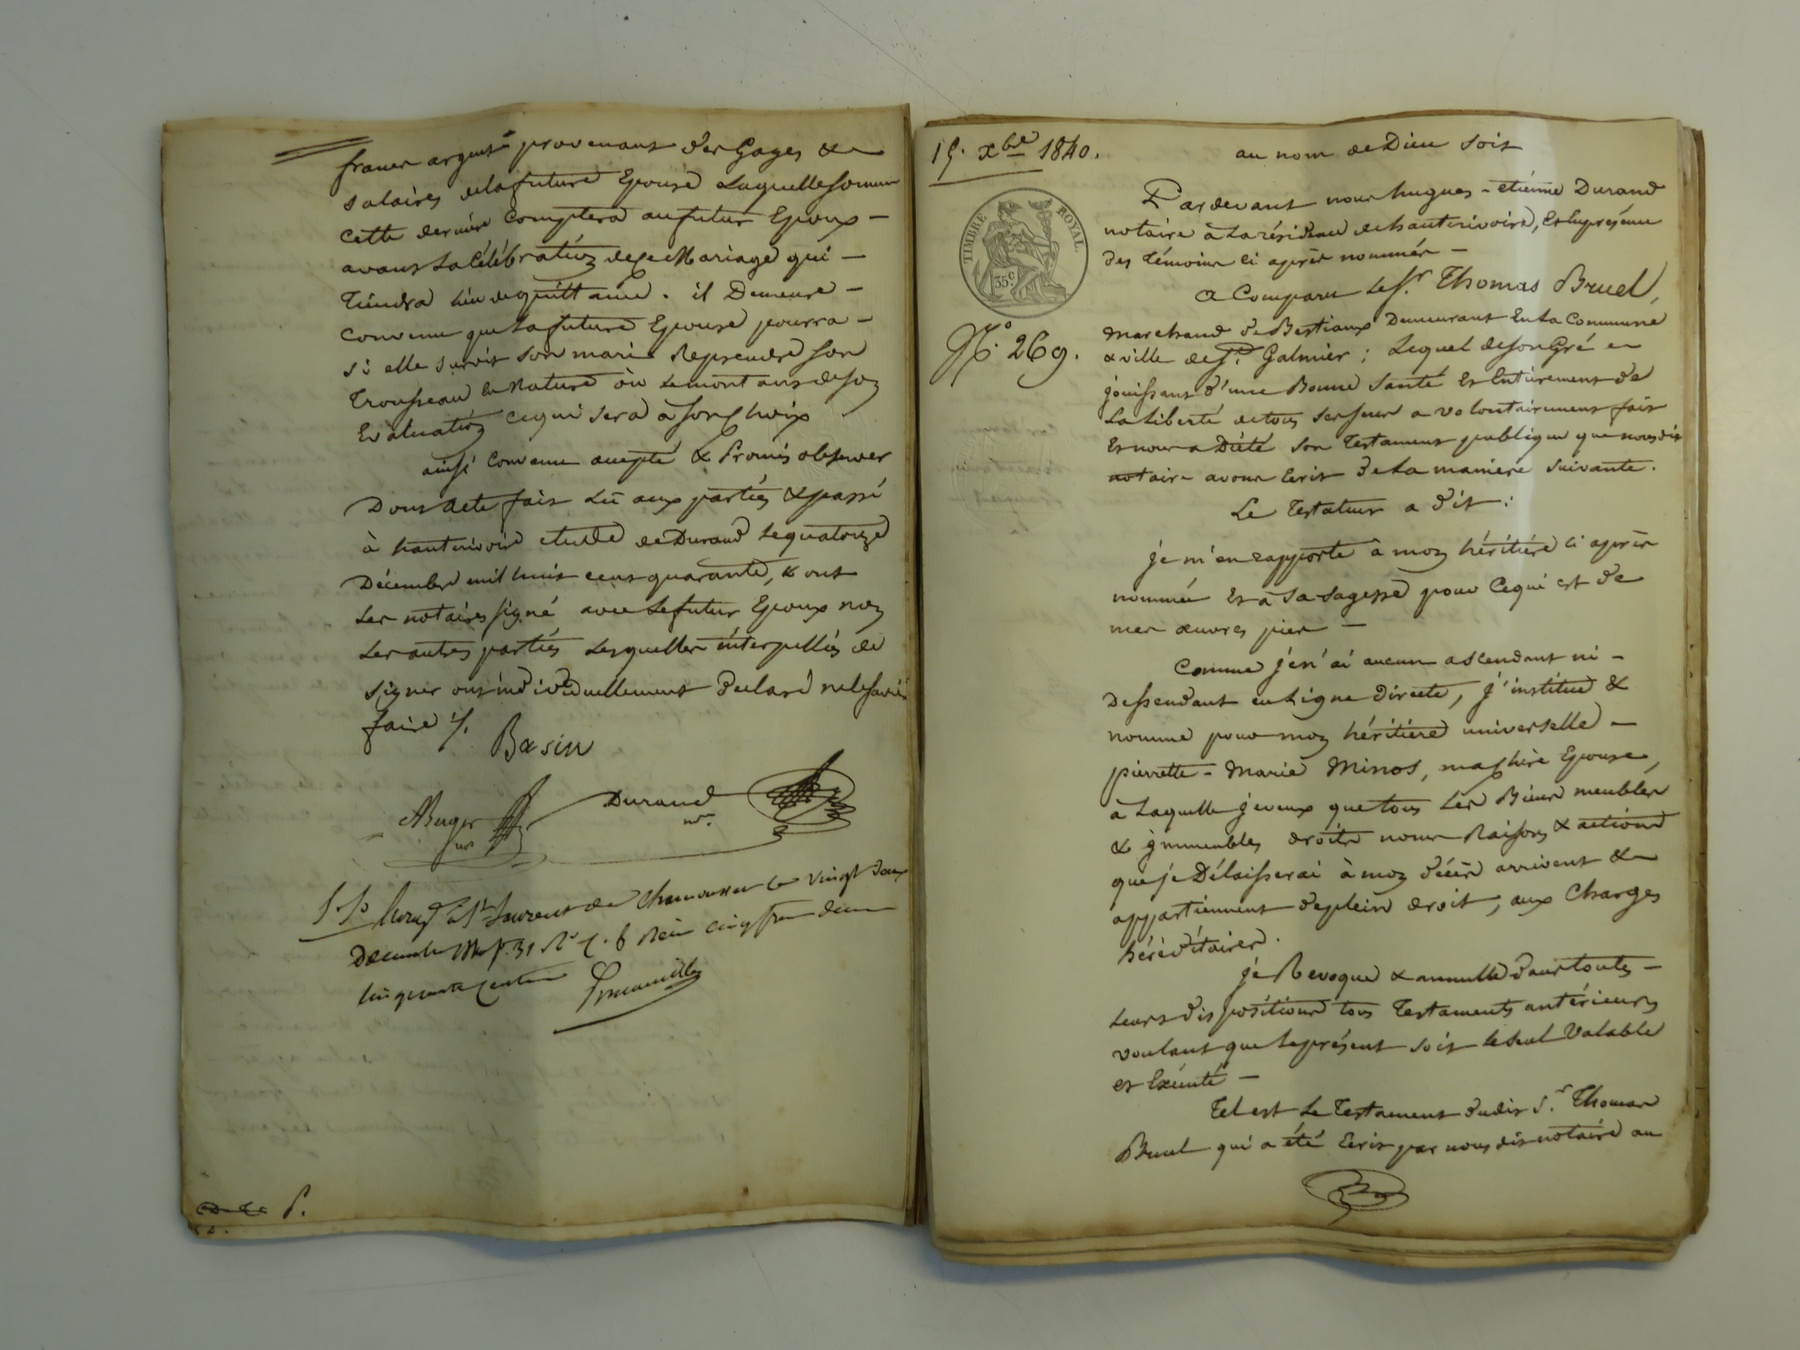 francs argent provenant des Gages &
salaires de la future Epouse Laquelle somme
cette dernière Comptera au futur Epoux —
avant La Célébration de ce Mariage qui —
Tiendra lieu de quittance. il Demeure —
convenu que La future Epouse pourra —
si elle survit son mari Reprendre son
Trousseau en Nature ou Le montant de son
Evaluation ce qui sera à son Choix
ainsi Convenu accepté & Promis observer
Dont Acte fait Lû aux parties & passé
à hauterivoire étude de Durand Le quatorze
Décembre mil huit cent quarante, & ont
Les notaires signé avec Le futur Epoux non
Les autres parties Lesquelles interpellées de
signer ont individuellement déclaré ne le savoir
faire ./.
Basin
ABerger
nre
Durand
nre.
à St Laurent de Chamousset le vingt deux
Décembre 1840 f. 31 Ro c. 6 Reçu cinq francs
cinquante centimes
15. Xbre 1840.
TIMBRE ROYAL
35 c
No. 269.
au nom de Dieu soit
Pardevant nous hugues-etienne Durand
notaire à La résidence de hauterivoire, En la présence
des témoins ci après nommés —
a Comparu Le Sr. Thomas Bruel,
marchand de Bestiaux Demeurant En La Commune
& ville de St. Galmier; Lequel de son Gré en
jouissant d'une Bonne Santé Et Entièrement de
La Liberté de tous ses sens a volontairement fait
Et nous a Dicté son Testament publique que nous dit
notaire avons Ecrit de La maniere suivante.
Le Testateur a dit :
je m'en rapporte à mon héritière ci après
nommée Et à sa sagesse pour Ce qui est de
mes œuvres pies —
Comme je n'ai aucun ascendant ni —
Dessendant en Ligne directe, j'institue &
nomme pour mon héritière universelle —
pierrette-Marie Minos, ma chère Epouse,
à Laquelle je veux que tous Les Biens meubles
& immeubles droits noms Raisons & actions
que je Délaisserai à mon décès arrivent &
appartiennent de plein droit, aux Charges
héréditaires.
je Revoque & annulle dans toutes —
Leurs dispositions tous Testaments antérieurs
voulant que Le présent soit le seul Valable
et Exécuté —
Tel est Le Testament dudit Sr. Thomas
Bruel qui a été Ecrit par nous dit notaire au